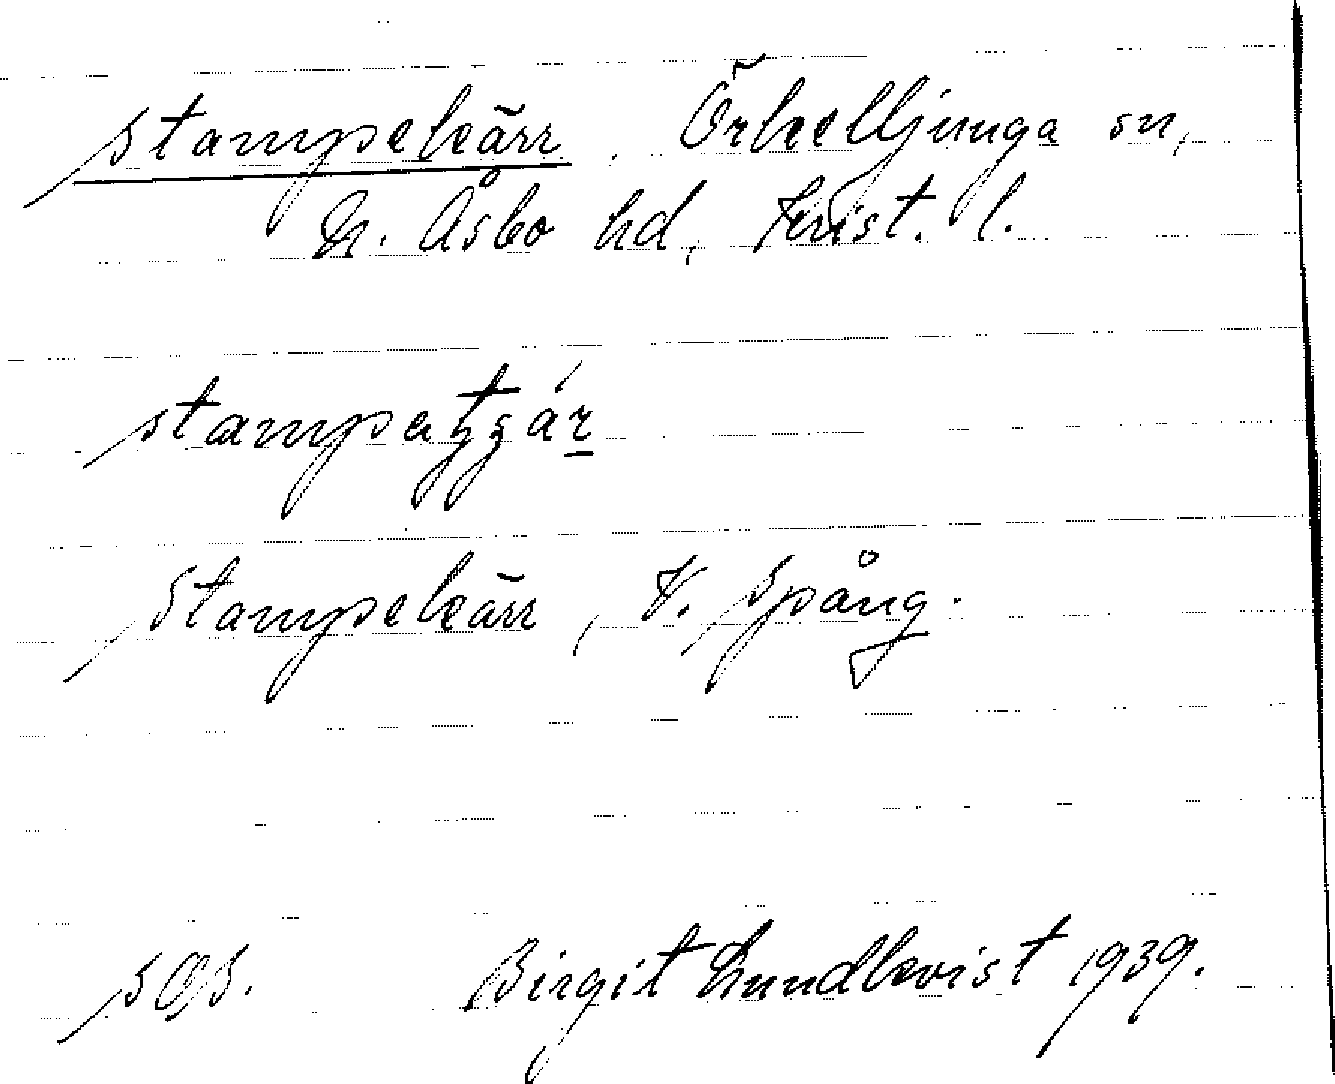 stampekärr. Örkelljunga sn,
N. Åsbo hd, Krist. l.
Stampekärr, V. Spång.
Birgit Lundkvist 1939.